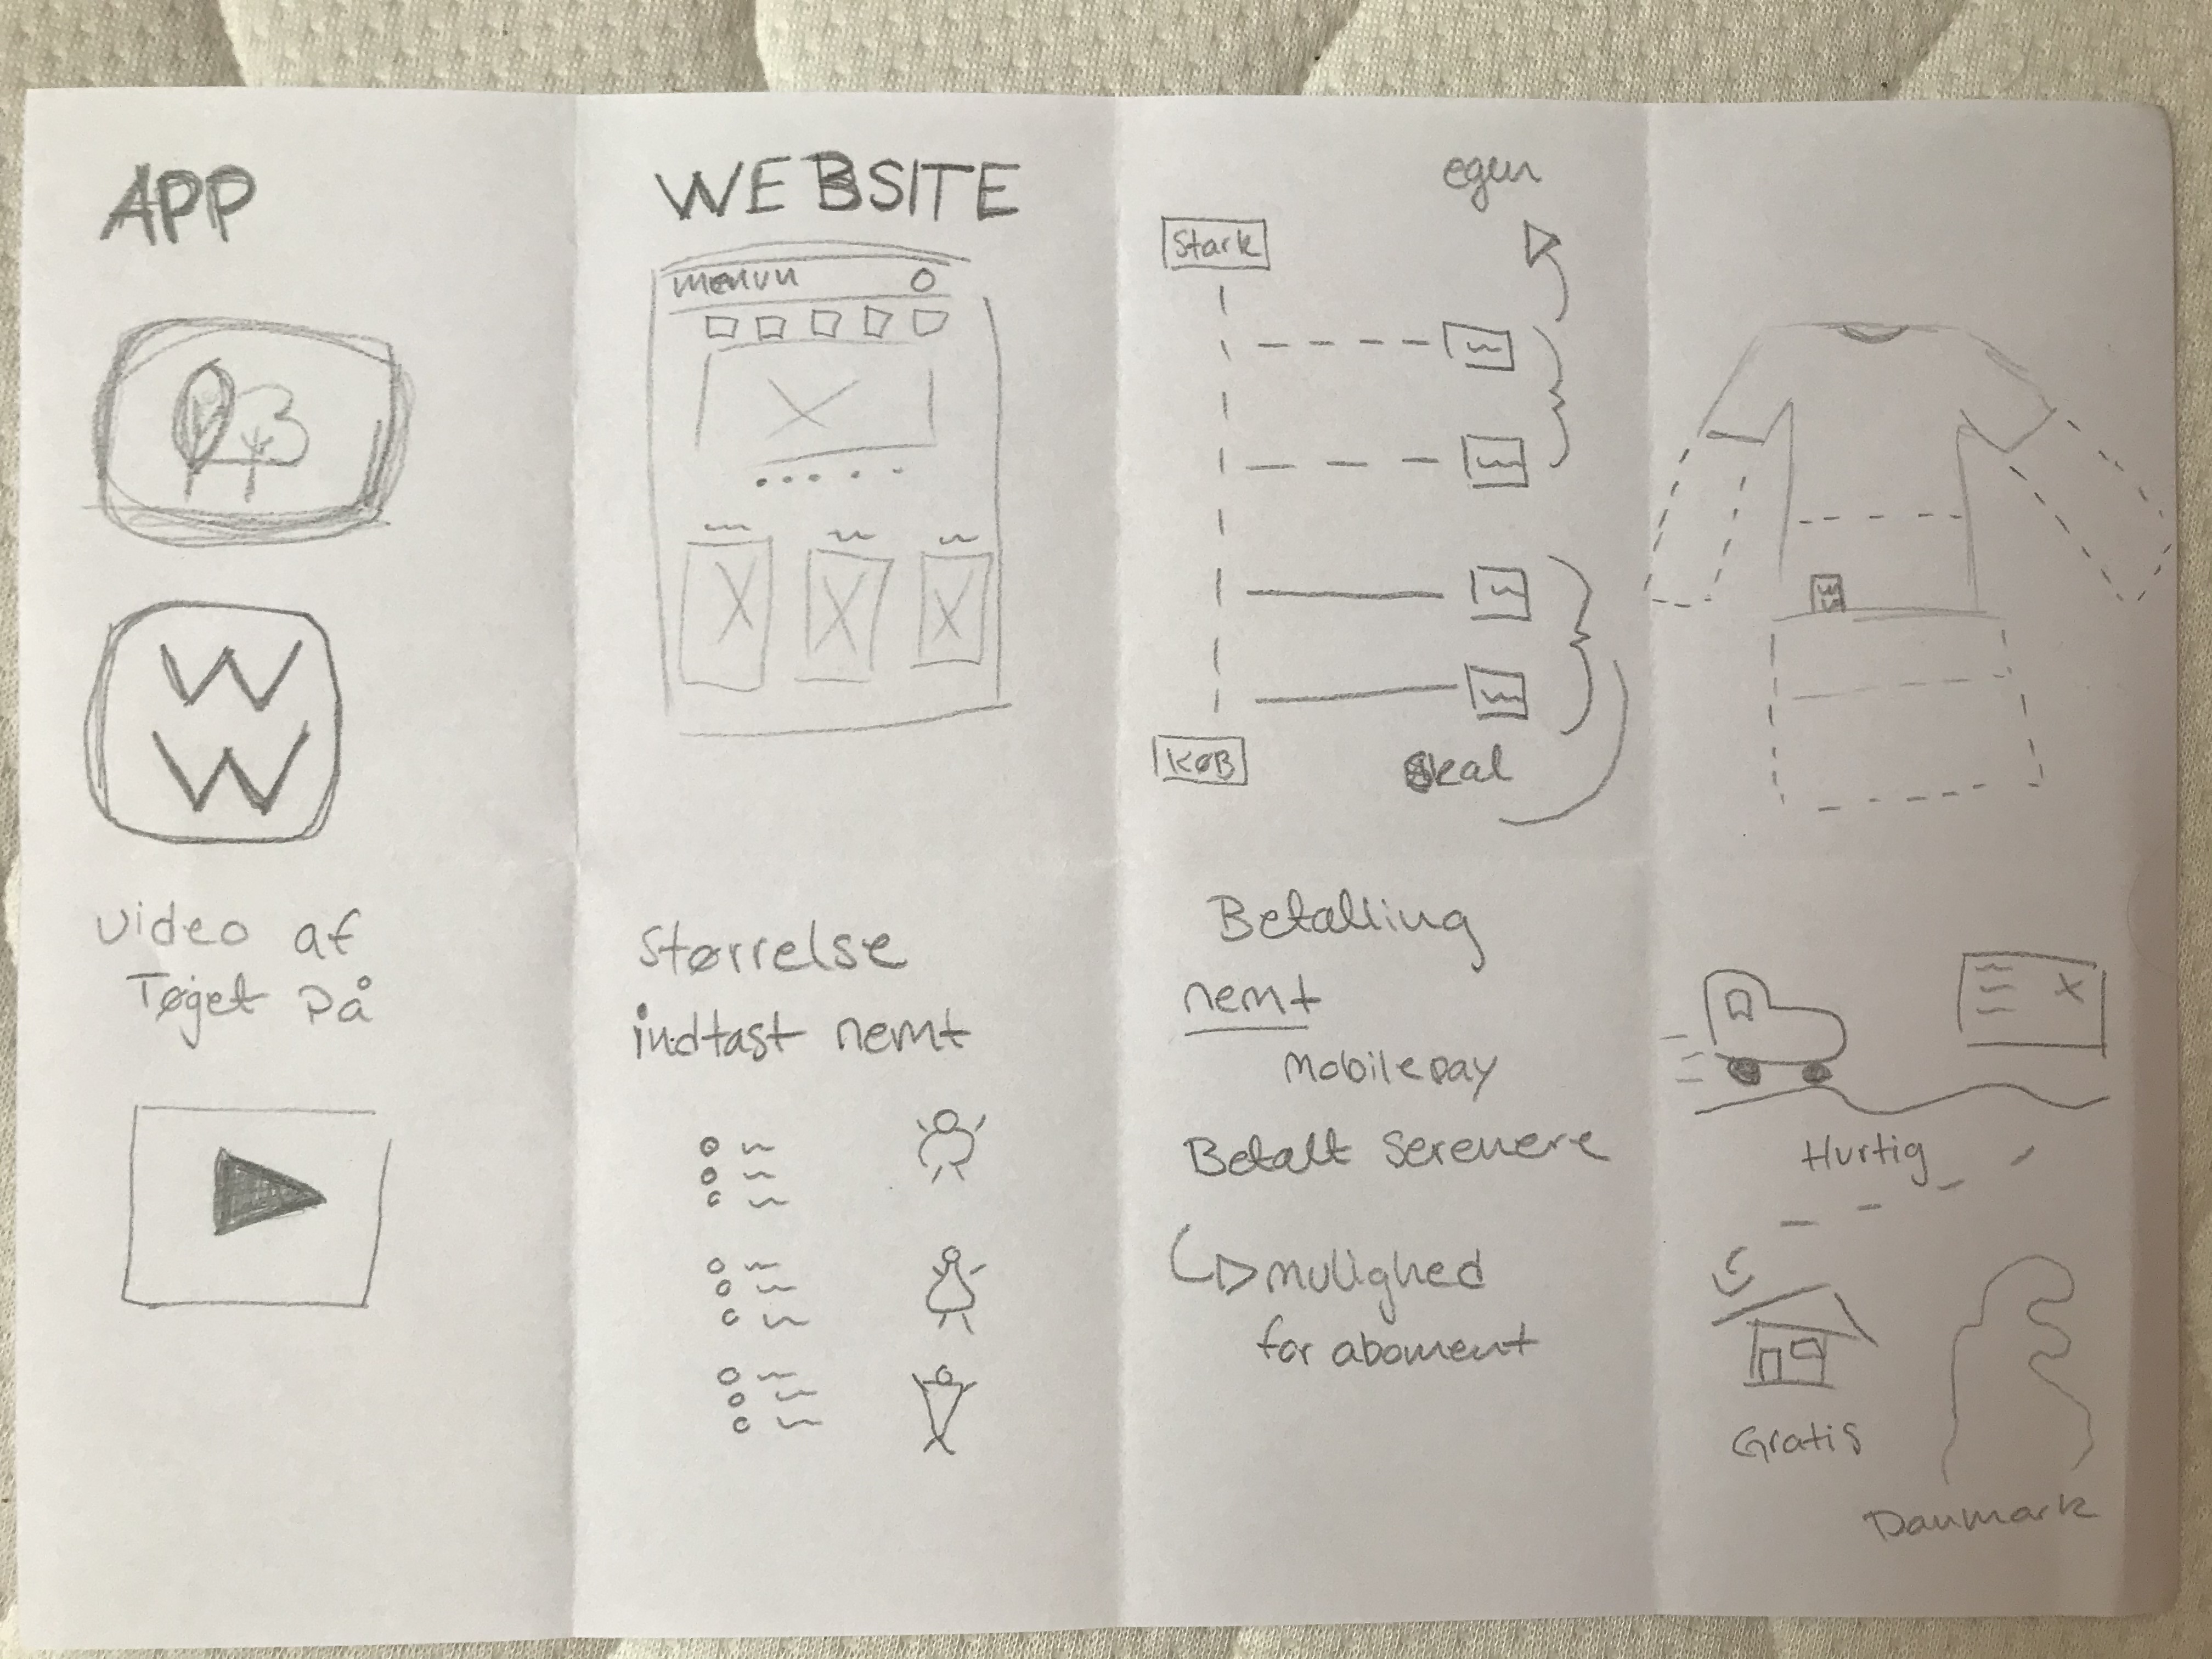 APP
W
W
video af
Tøjet på
WEBSITE
menuu
størrelse
indtast nemt
egen
Stark
KØB
Skal
Betalling
nemt
mobilepay
Betalt serenere
mulighed
for aboment
Hurtig
Gratis
Danmark